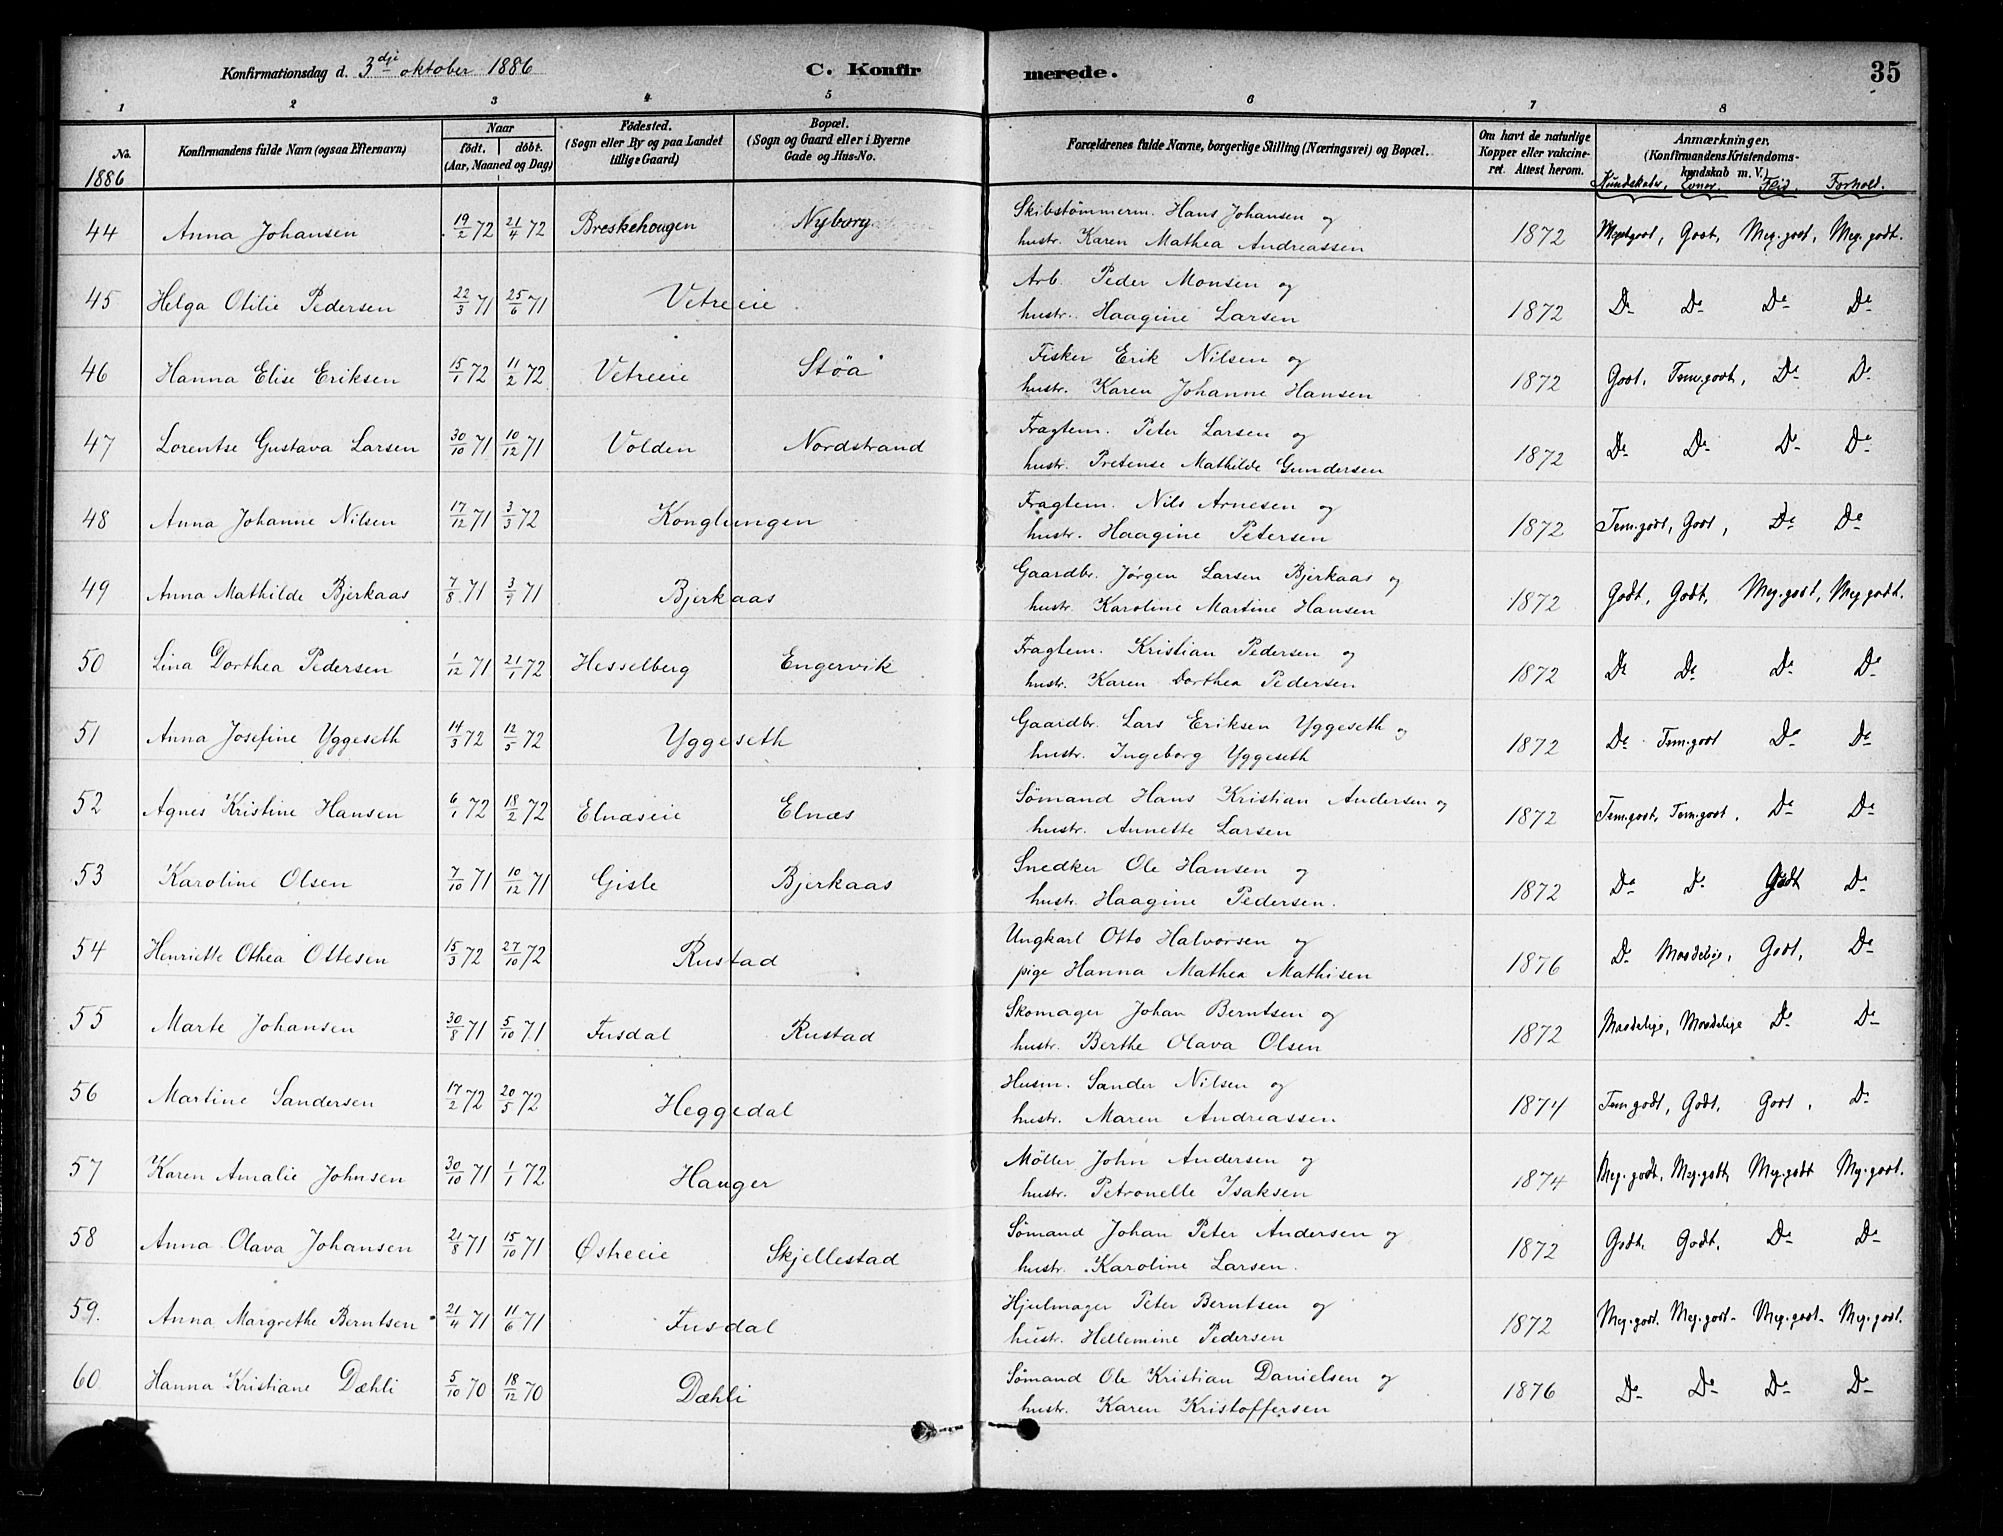 Konfirmationsdag d. 3dje oktober 1886
C. Konfirmerede.
35
1 2 3 4 5 6 7 8
No. Konfirmandens fulde Navn (ogsaa Efternavn) Naar födt. döbt. (Aar, Maaned og Dag) Födested. (Sogn eller By og paa Landet tillige Gaard) Bopæl. (Sogn og Gaard eller i Byerne Gade og Hus-No. Forældrenes fulde Navne, borgerlige Stilling (Næringsvei) og Bopæl. Om havt de naturlige Kopper eller vakcineret. Attest herom. Anmærkninger, (Konfirmandens Kristendomskundskab m. V.)
1886 Kundskaber, Evner. Flid. Forhold.
44 Anna Johansen 19/2 72 21/4 72 Breskehougen Nyborg Skibstømmerm. Hans Johansen og
hustr. Karen Mathea Andreassen 1872 Megetgodt, Godt, Meg. godt, Meg. godt.
45 Helga Otilie Pedersen 22/3 71 25/6 71 Vetreeie Arb. Peder Monsen og
hustr. Haagine Larsen 1872 Do Do Do Do
46 Hanna Elise Eriksen 15/1 72 11/2 72 Vetreeie Støa Fisker Erik Nilsen og
hustr. Karen Johanne Hansen 1872 Godt, Tem.godt, Do Do
47 Lorentse Gustava Larsen 30/10 71 10/12 71 Volden Nordstrand Fragtem. Peter Larsen og
hustr. Pretense Mathilde Gundersen 1872 Do Do Do Do
48 Anna Johanne Nilsen 17/12 71 3/3 72 Konglungen Fragtem. Nils Arnesen og
hustr. Haagine Petersen 1872 Tem.godt, Godt, Do Do
49 Anna Mathilde Bjerkaas 7/8 71 3/9 71 Bjerkaas Gaardbr. Jørgen Larsen Bjerkaas og
hustr. Karoline Martine Hansen 1872 Godt, Godt, Meg.godt, Meg godt.
50 Lina Dorthea Pedersen 1/12 71 21/1 72 Hesselberg Engervik Fragtem. Kristian Pedersen og
hustr. Karen Dorthea Pedersen 1872 Do Do Do Do
51 Anna Josefine Yggeseth 14/3 72 12/5 72 Yggeseth Gaardbr. Lars Eriksen Yggeseth og
hustr. Ingeborg Yggeseth 1872 Do Tem.godt Do Do
52 Agnes Kristine Hansen 6/1 72 18/2 72 Elnæseie Elnæs Sømand Hans Kristian Andersen og
hustr. Annette Larsen 1872 Tem.godt, Tem.godt, Do Do
53 Karoline Olsen 7/10 71 10/12 71 Gisle Bjerkaas Snedker Ole Hansen og
hustr. Haagine Pedersen. 1872 Do Do Godt Do
54 Henriette Othea Ottesen 15/3 72 27/10 72 Rustad Ungkarl Otto Halvorsen og
pige Hanna Mathea Mathisen 1876 Do Maadelige, Godt, Do
55 Marte Johansen 30/8 71 5/10 71 Fusdal Rustad Skomager Johan Berntsen og
hustr. Berthe Olava Olsen 1872 Maadelige, Maadelige Do Do
56 Martine Sandersen 17/2 72 20/5 72 Heggedal Husm. Sander Nilsen og
hustr. Maren Andreassen 1874 Tem.godt, Godt, Godt, Do
57 Karen Amalie Johnsen 30/10 71 1/1 72 Hauger Møller John Andersen og
hustr. Petronelle Isaksen 1874 Meg.godt, Meg.godt, Meg.godt Meg.godt.
58 Anna Olava Johansen 21/8 71 15/10 71 Østreeie Skjellestad Sømand Johan Peter Andersen og
hustr. Karoline Larsen. 1872 Godt, Godt, Do Do
59. Anna Margrethe Berntsen 21/4 71 11/6 71 Fusdal Hjulmager Peter Berntsen og
hustr. Hellemine Pedersen 1872 Meg.godt. Meg.godt. Meg.godt. Meg.godt.
60 Hanna Kristiane Dæhli 5/10 70 18/12 70 Dæhli Sømand Ole Kristian Danielsen og
hustr. Karen Kristoffersen 1876 Do Do Do Do